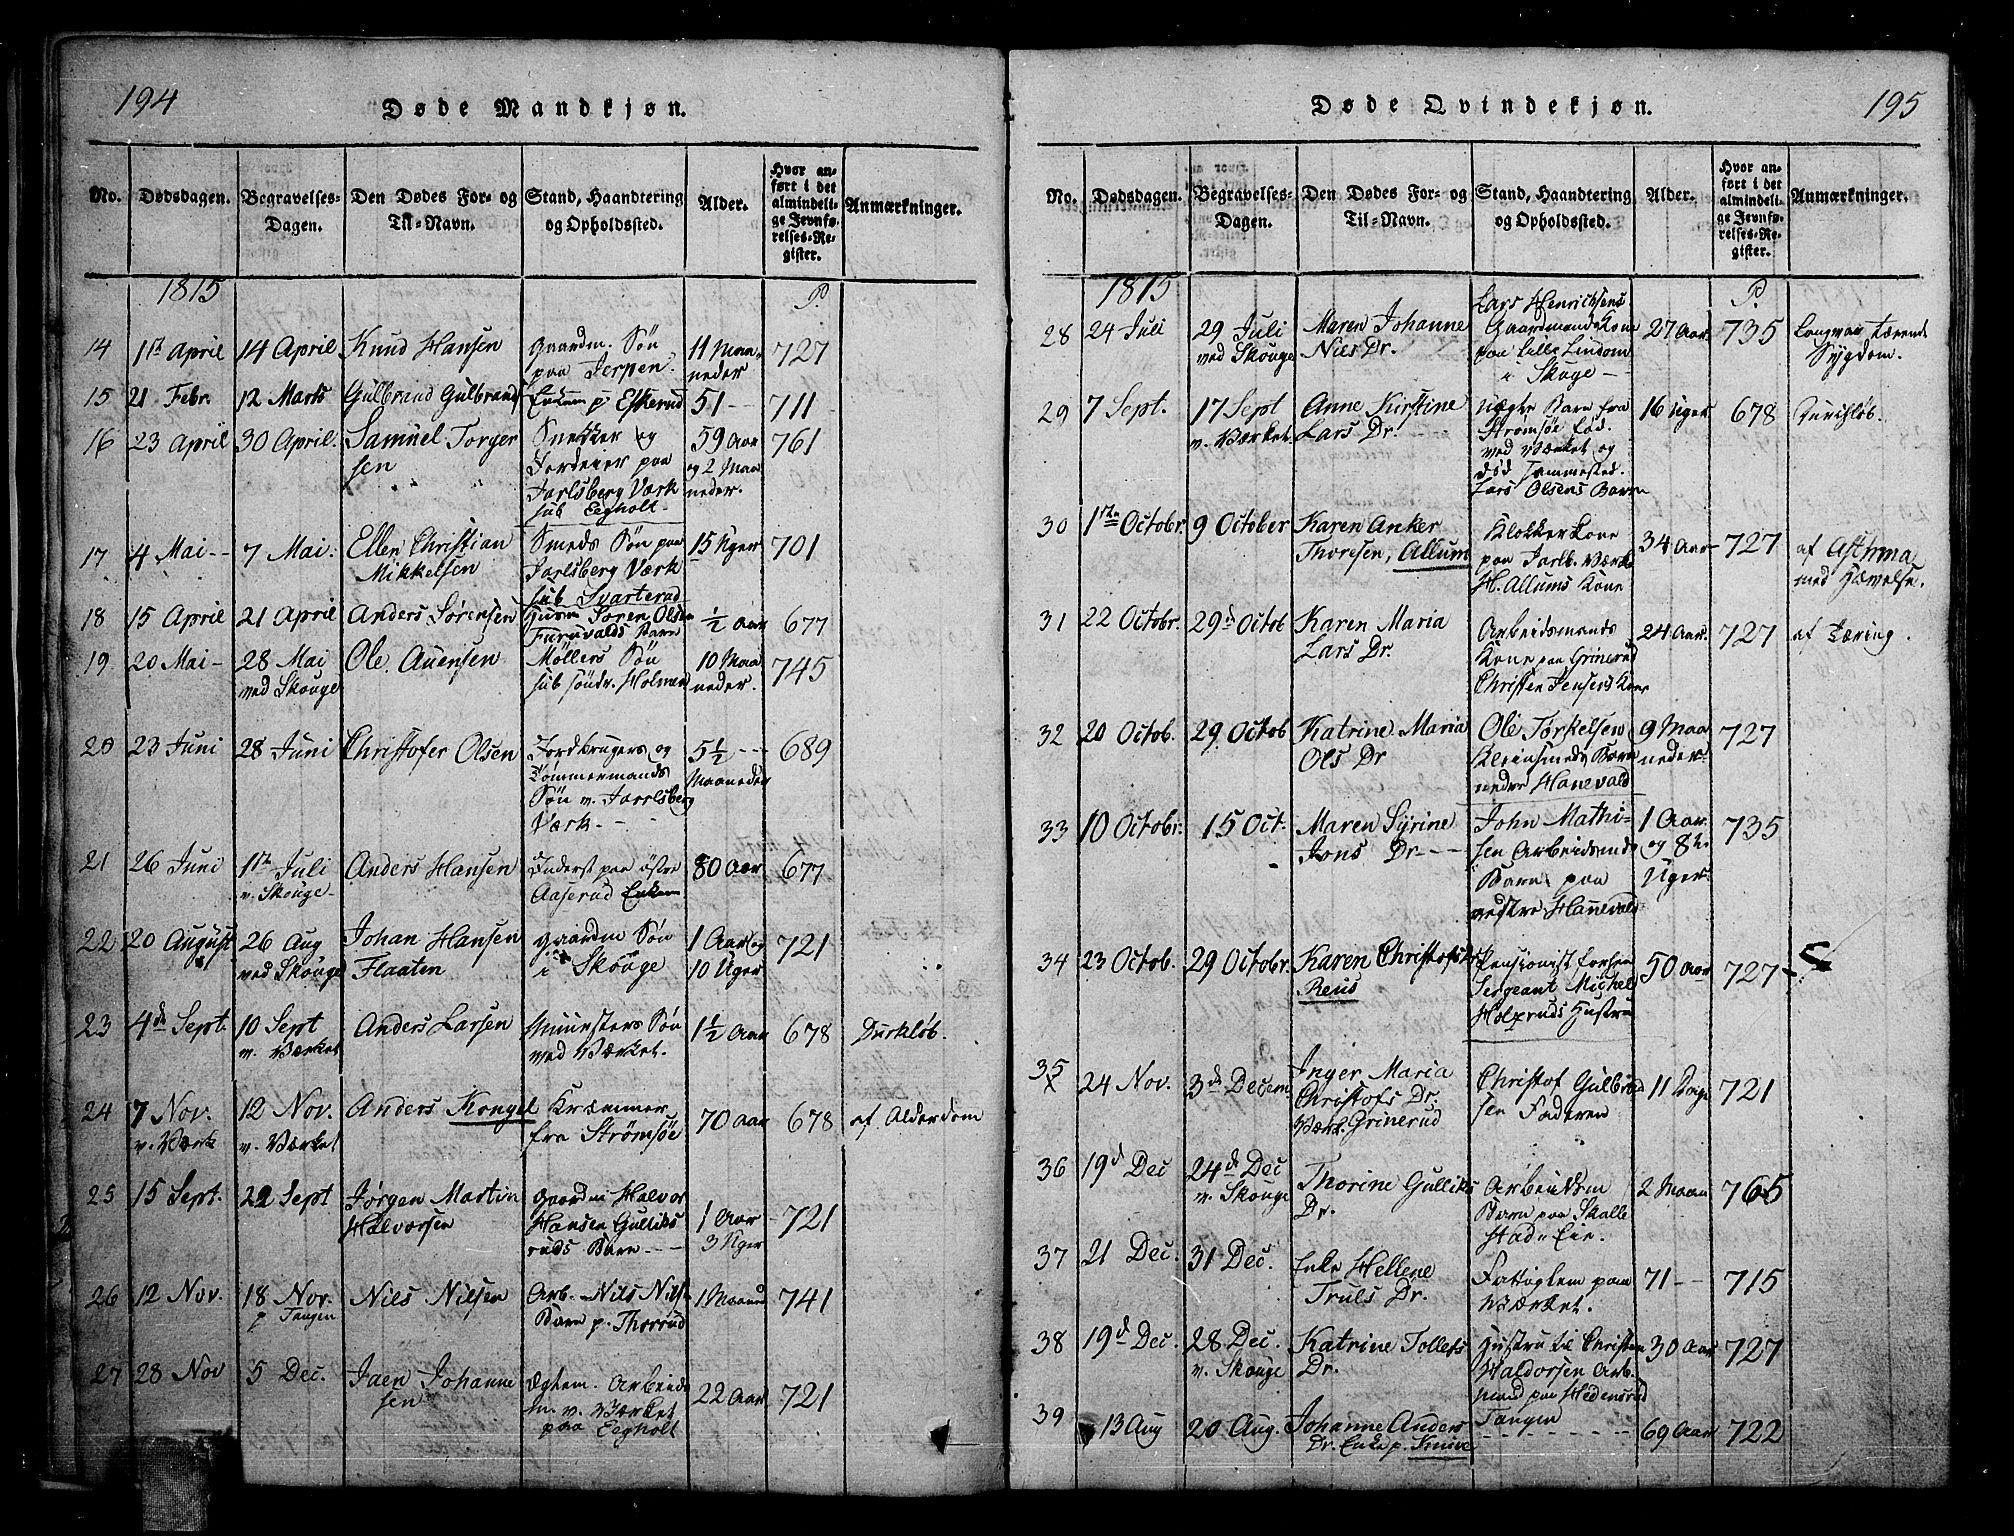 194
Døde Mandkjøn.
No. Dødsdagen. Begravelses-Dagen. Den Dødes For- og Til-Navn. Stand, Haandtering og Opholdssted. Alder. Hvor anført i det almindelige Jevnførelses-Register. Anmærkninger.
1815 P.
14 1st April 14 April Knud Hansen Gaardm. Søn paa Jerpen. 11 Maaneder 727
15 21 Febr. 12 Marts Gulbrand Gulbrands Enkem p. Eskerud 51 – 711
16 23 April 30 April. Samuel Torgersen Snekker og Jordeier paa Jarlsberg Værk sub Eegholt 59 Aar og 2 Maaneder. 761
17 4 Mai 7 Mai. Ellen Christian Mikkelsen Smeds Søn paa Jarlsberg Værk sub Svarterud 15 Uger 701
18 15 April 21 April Anders Sørensen Husm Søren Olsen Furuvalds Barn ½ Aar 677
19 20 Mai 28 Mai ved Skouge Ole Auensen Møllers Søn sub søndr. Holmen 10 Maaneder. 745
20 23 Juni 28 Juni Christofer Olsen Jordbrugers og Tømmermands Søn v. Jarlsberg Værk. 5½ Maaneder 689
21 26 Juni 1st Juli v. Skouge Anders Hansen Inderst paa østre Aaserud Enkem 80 Aar 677
22 20 August 26 Aug ved Skouge Johan Hansen Flaaten Gaardm Søn i Skouge 1 Aar og 10 Uger 721
23 4de Sept. 10 Sept v. Værket Anders Larsen Søn ved Værket. 1½ Aar 678 Durkløb.
24 7 Nov. v. Værk 12 Nov. v. Værket Anders Kongel Kræmmer fra Strømsøe 70 Aar 678 af Alderdom
25 15 Sept. 22 Sept Jørgen Martin Halvorsen Gaardm Halvor Hansen Gulliksruds Barn 1 Aar 3 Uger 721
26 12 Nov. 18 Nov. p Tangen Nils Nilsen Arb. Nils Nils. Barn p. Thorrud 1 Maaned 741
27 28 Nov 5 Dec. Jaen Johannesen Ægtem. Arbeidsm. v. Værket paa Eegholt 22 Aar 721
195
Døde Qvindekjøn.
No. Dødsdagen. Begravelses-Dagen. Den Dødes For- og Til-Navn. Stand, Haandtering og Opholdssted. Alder. Hvor anført i det almindelige Jevnførelses-Register. Anmærkninger.
1815 P.
28 24 Juli 29 Juli ved Skouge Maren Johanne Niels Dr. Lars Henrichsens Gaardmands Kone paa Lille Lindom i Skoge 27 Aar 735 Langvar. tærende Sygdom.
29 7 Sept. 17 Sept v. Værket. Anne Kirstine Lars Dr. Uægte Barn fra Strømsøe fød. ved Værket og død sammested. Lars Olsens Barn 16 Uger 678
30 1ste Octobr. 9 October Karen Anker Thoresen, Allum Klokker Kone paa Jarlb. Værk H. Allums Kone 34 Aar 727 af Asthma med Hævelse.
31 22 Octobr. 29d Octob Karen Maria Lars Dr. Arbeidsmands Kone paa Grinerud Christen Jensens Kone 24 Aar. 727 af Tæring.
32 20 Octob. 29 Octob Katrine Maria Ols Dr Ole Torkelsen Kleinsmeds Barn nedre Hanevald 9 Maaneder 727
33 10 Octobr. 15 Oct. Maren Syrine Jons Dr. John Mathisen Arbeidsmds Barn paa vestre Hanevald 1 Aar og 8te Uger 735
34 23 Octob. 29 Octobr. Karen Christofs Dr Reus Pensionist forhen Sergeant Michel Holpruds Hustru 50 Aar 727
35 X 24 Nov. 3de Decem Inger Maria Christofs Dr. Værk. Grinerud Christof Gulbrandsen Faderen 11 Dage 721
36 19d Dec 24de Dec v. Skouge Thorine Gulliks Dr. Arbeidsm Barn paa Skallestad Eie. 2 Maan 765
37 21 Dec. 31 Dec. Enke Hellene Truls Dr. Fattiglem paa Værket. 71 – 715
38 19d Dec. 28 Dec. v. Skouge Katrine Tollefs Dr. Hustru til Christen Haldorsen Arb. mand paa Hedensrud Tangen 30 Aar 727
39 13 Aug 20 Aug. Johanne Anders Dr. Enke p. Knive 69 Aar 722